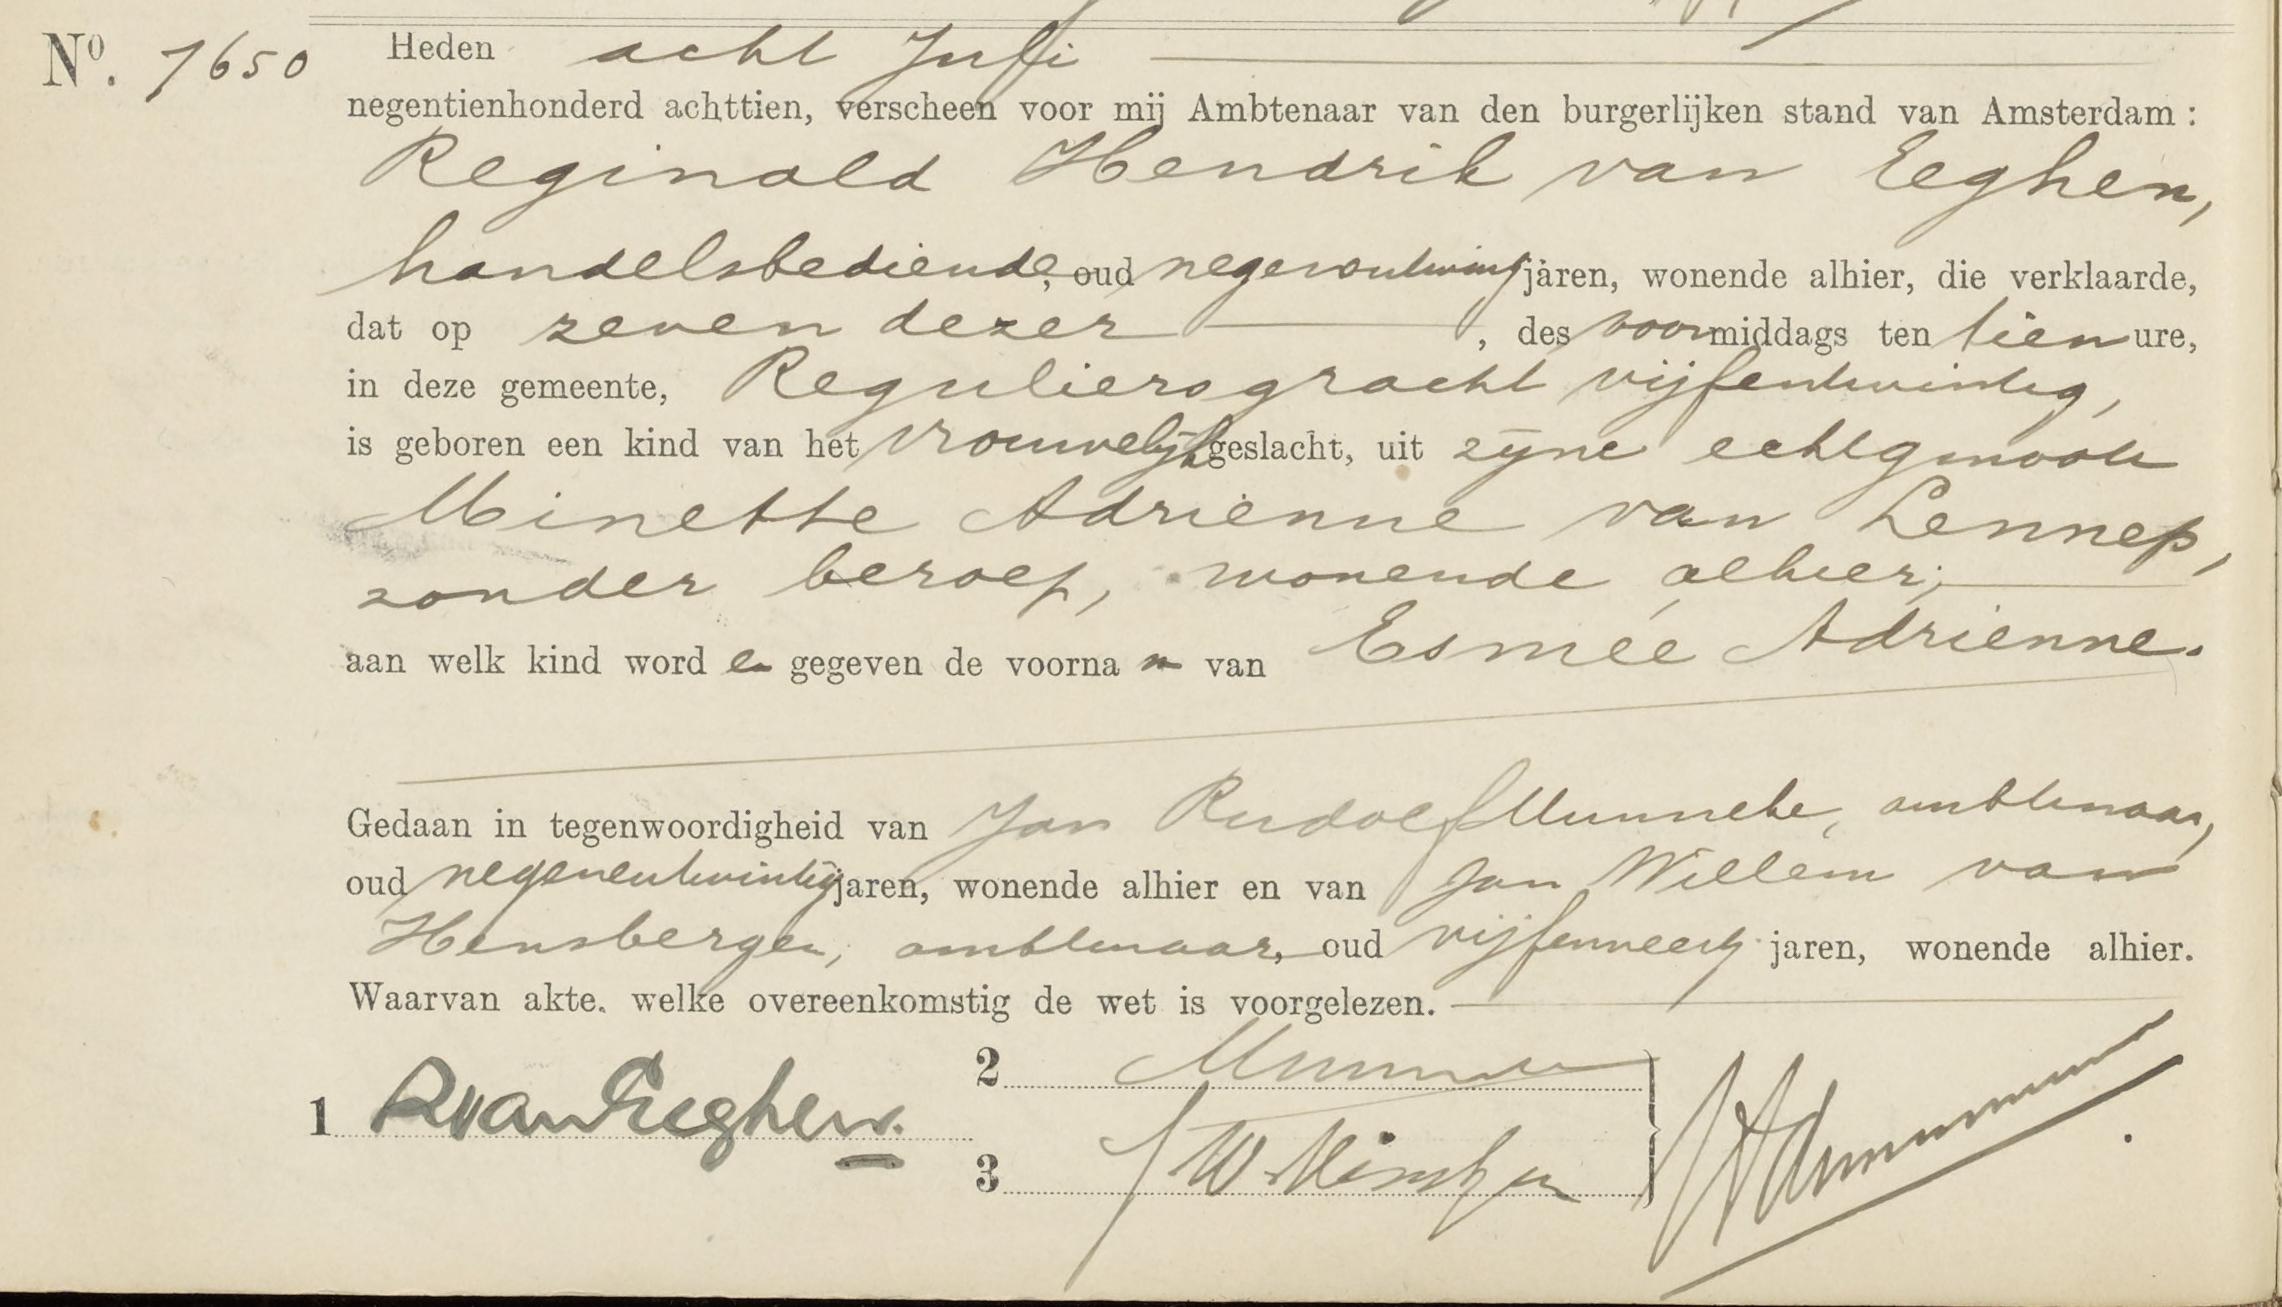 Nº. 7650 Heden acht Juli
negentienhonderd achttien, verscheen voor mij Ambtenaar van den burgerlijken stand van Amsterdam :
Reginald Hendrik van Eeghen,
handelsbediende, oud negenentwintig jaren, wonende alhier, die verklaarde,
dat op zeven dezer , des voormiddags ten tien ure,
in deze gemeente, Reguliersgracht vijfentwintig,
is geboren een kind van het vrouwelijk geslacht, uit zijne echtgenoote
Minette Adrienne van Lennep,
zonder beroep, wonende alhier;
aan welk kind worden gegeven de voornamen van Esmée Adrienne.
Gedaan in tegenwoordigheid van Jan Rudolf Munneke, ambtenaar,
oud negenentwintig jaren, wonende alhier en van Jan Willem van
Hensbergen, ambtenaar, oud vijfenveertig jaren, wonende alhier.
Waarvan akte. welke overeenkomstig de wet is voorgelezen.
2
1 RvanEeghen.
3